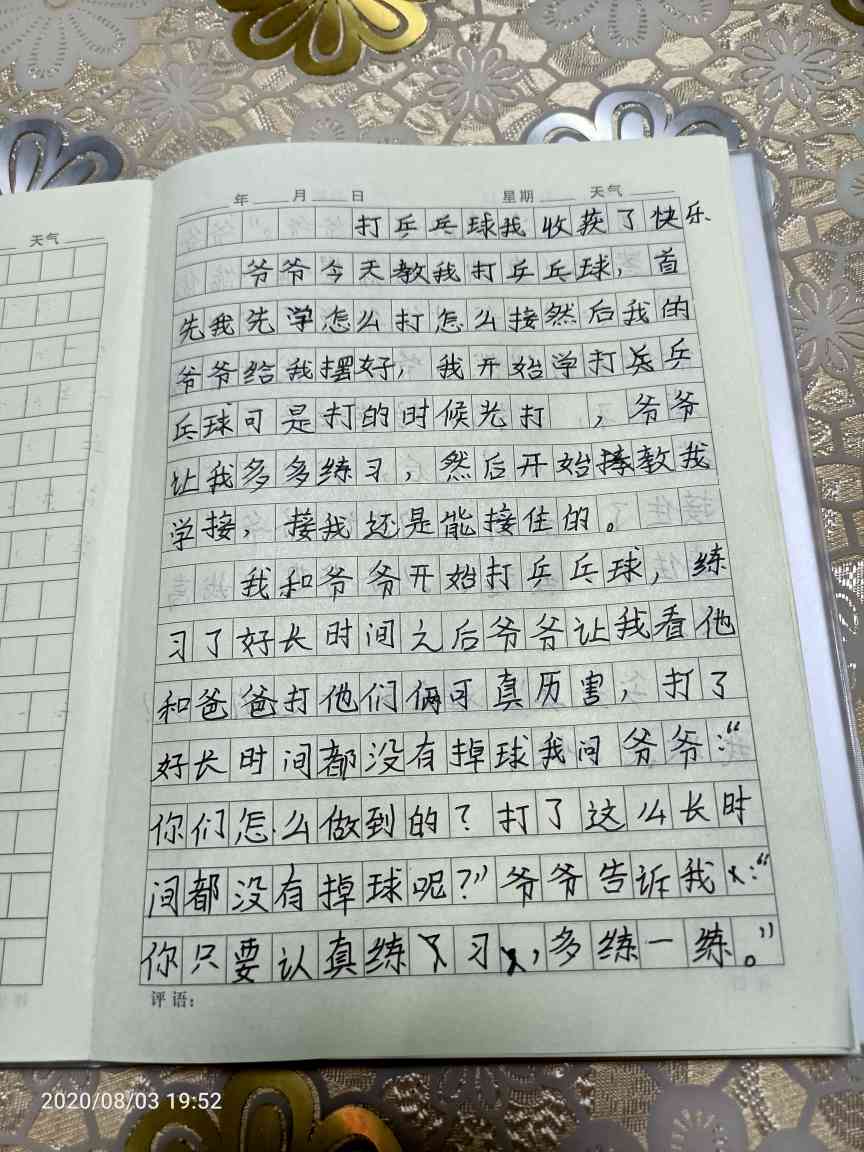 年 月 日 星期 天气
天气
打乒乓球我收获了快乐
爷爷今天教我打乒乓球，首
先我先学怎么打怎么接然后我的
爷爷给我摆好，我开始学打乒
乓球可是打的时候光打 ，爷爷
让我多多练习，然后开始教我
学接，接我还是能接住的。
我和爷爷开始打乒乓球，练
习了好长时间之后爷爷让我看他
和爸爸打他们俩可真历害，打了
好长时间都没有掉球我问爷爷：“
你们怎么做到的？打了这么长时
间都没有掉球呢？”爷爷告诉我：“
你只要认真练习，多练一练。”
评语：
2020/08/03 19:52